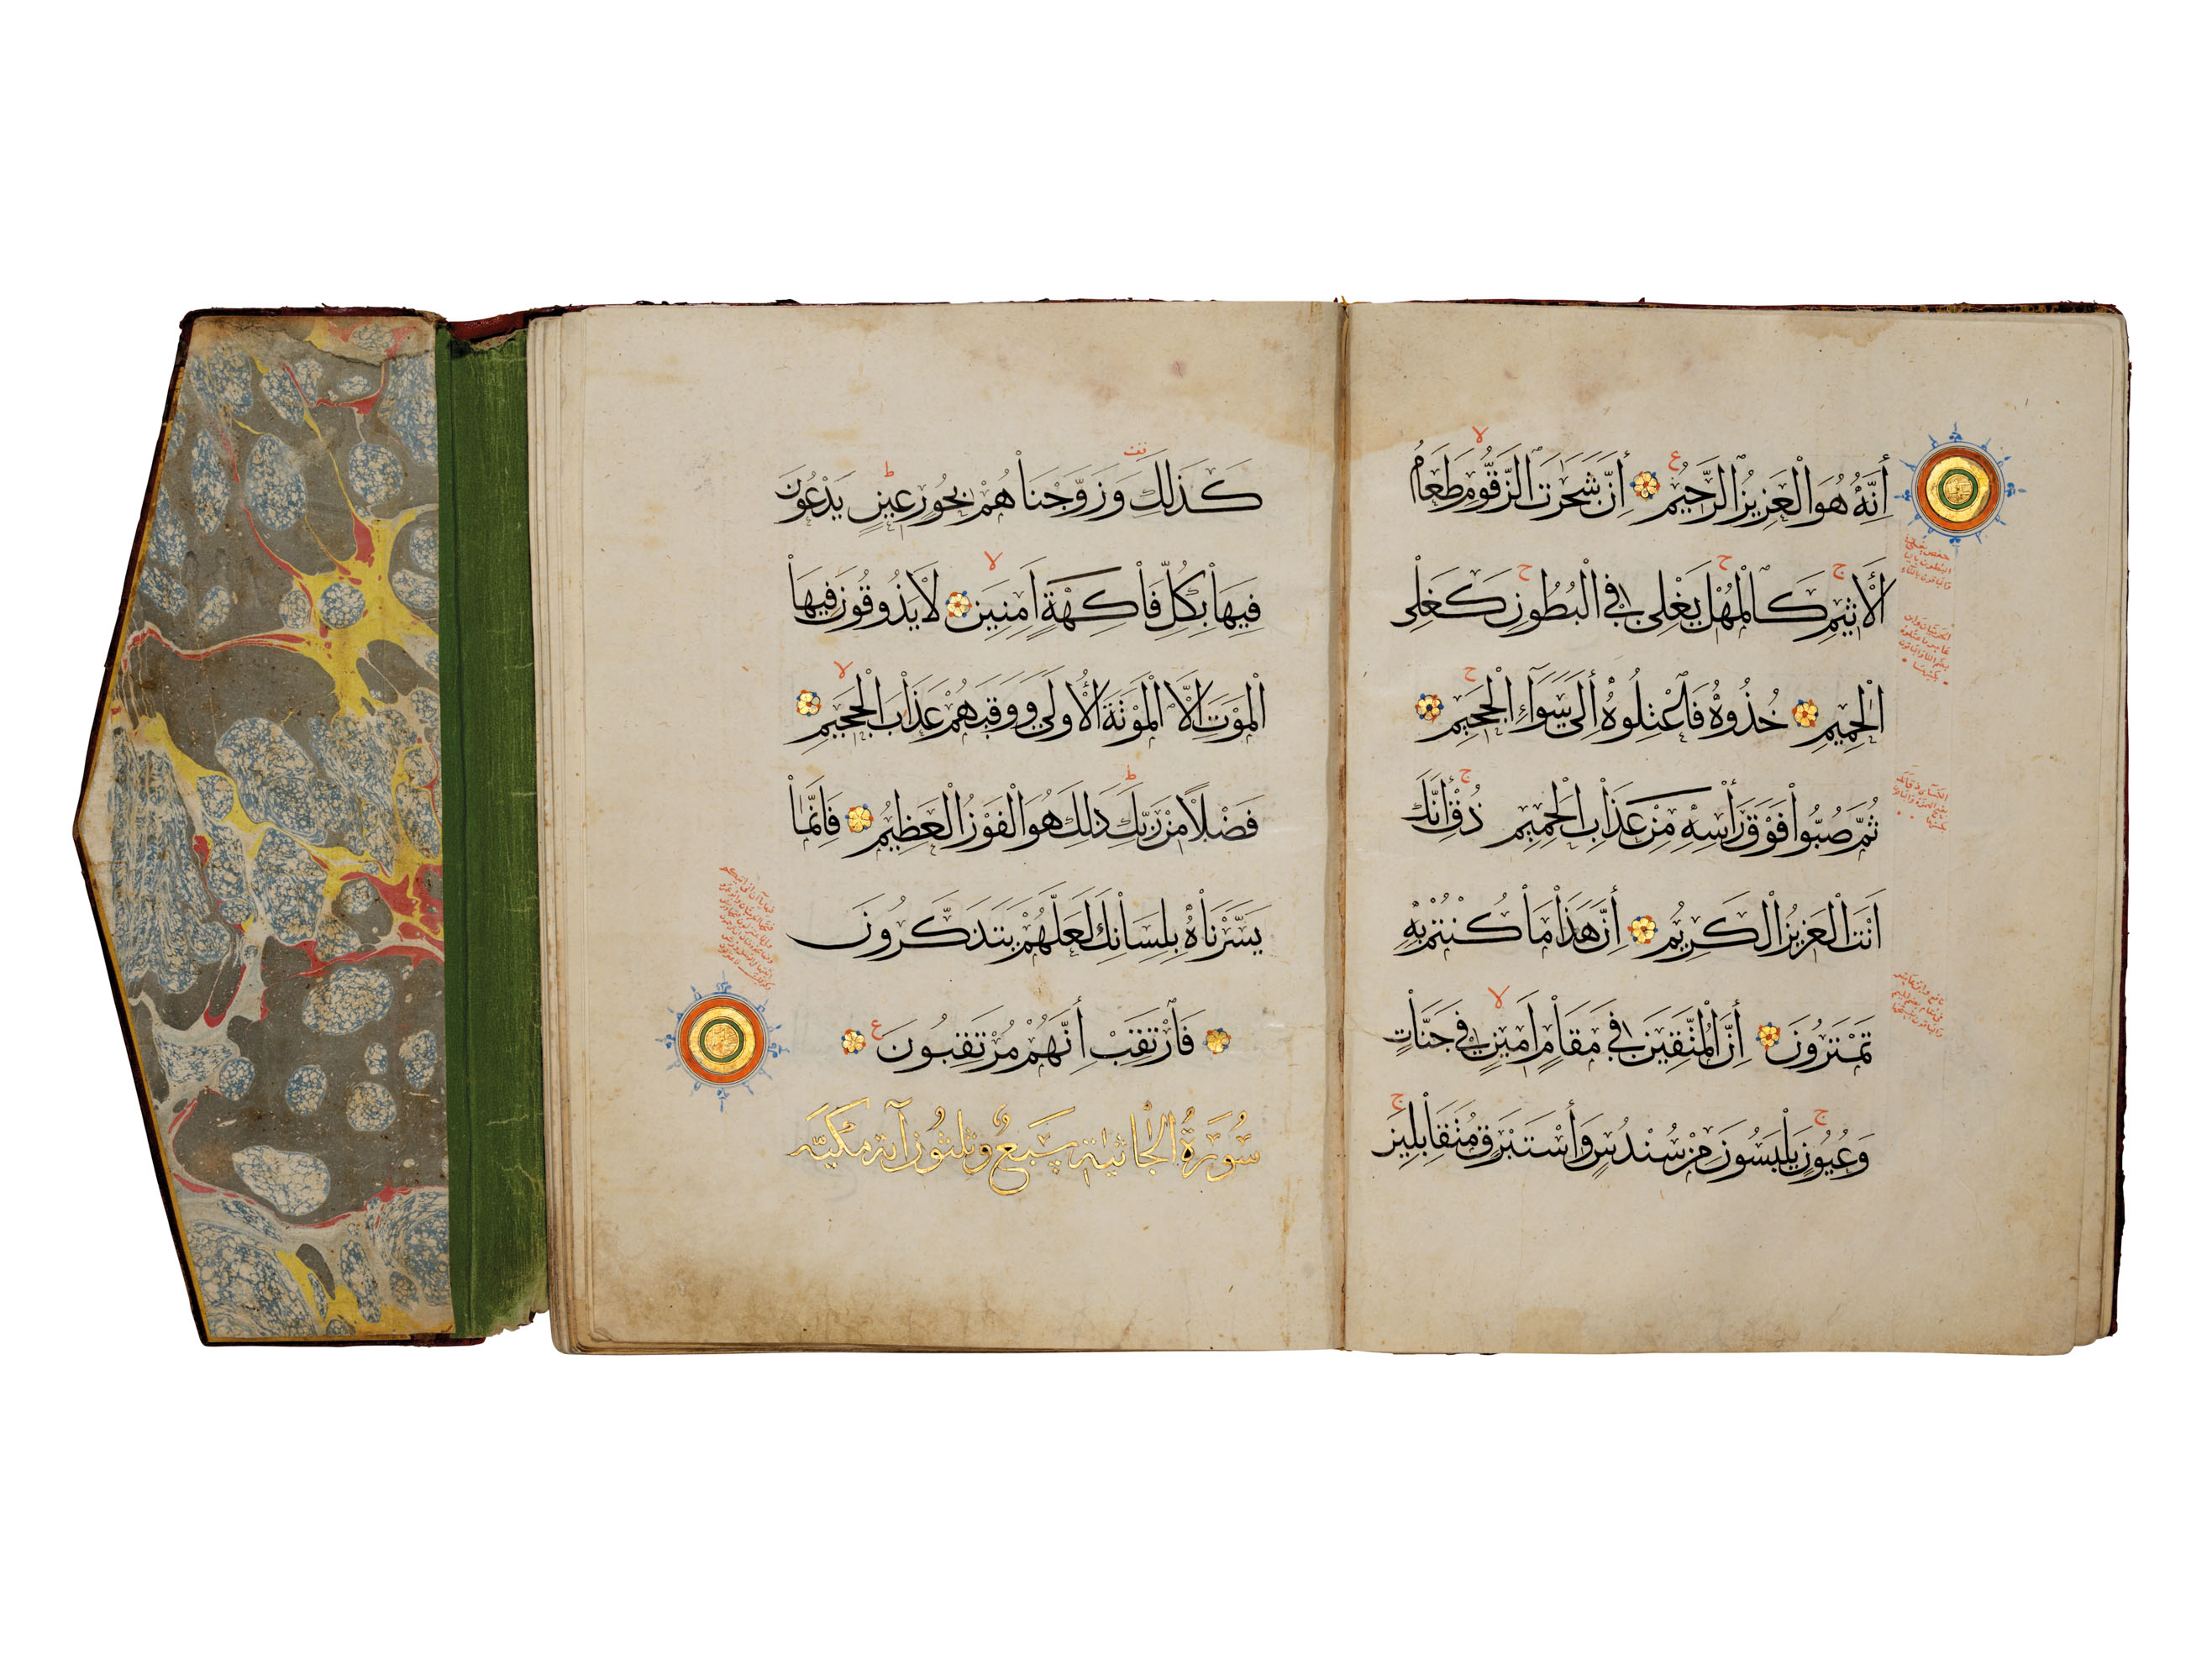 أَنَّهُ هُوَ الْعَزِيزُ الرَّحِيمُ أِنَّ شَجَرَتَ الزَّقُّومِ طَعَامُ
الْأَثِيمِ كَالْمُهْلِ يَغْلِى فِى الْبُطُونِ كَغَلْىِ
الْحَمِيمِ خُذُوهُ فَاعْتِلُوهُ أِلَى سَوَآءِ الْجَحِيمِ
ثُمَّ صُبُّوا فَوْقَ رَأْسِهِ مِنْ عَذَابِ الْحَمِيمِ ذُقْ اِنَّكَ
اَنْتَ الْعَزِيزُ الْكَرِيمُ أِنَّ هَذَا مَا كُنْتُمْ بِهِ
تَمْتَرُونَ أِنَّ الْمُتَّقِينَ فِى مَقَامٍ اَمِينٍ فِى جَنَّاتٍ
وَعُيُونٍ يَلْبَسُونَ مِنْ سُنْدُسٍ وَأِسْتَبْرَقٍ مُتَقَابِلِينَ
كَذَلِكَ وَزَوَّجْنَاهُمْ بِحُورٍ عِينٍ يَدْعُونَ
فِيهَا بِكُلِّ فَاكِهَةٍ اَمِنِينَ لَا يَذُوقُونَ فِيهَا
الْمَوْتَ اِلَّا الْمَوْتَةَ الْأُولَى وَوَقَيهُمْ عَذَابَ الْجَحِيمِ
فَضْلًا مِنْ رَبِّكَ ذَلِكَ هُوَ الْفَوْزُ الْعَظِيمُ فَاِنَّمَا
يَسَّرْنَاهُ بِلِسَانِكَ لَعَلَّهُمْ يَتَذَكَّرُونَ
فَارْتَقِبْ أِنَّهُمْ مُرْتَقِبُونَ
سُورَةُ الْجَاثِيَة سَبْعٌ وَثَلَثُونَ آيَة مَكِّيَّة